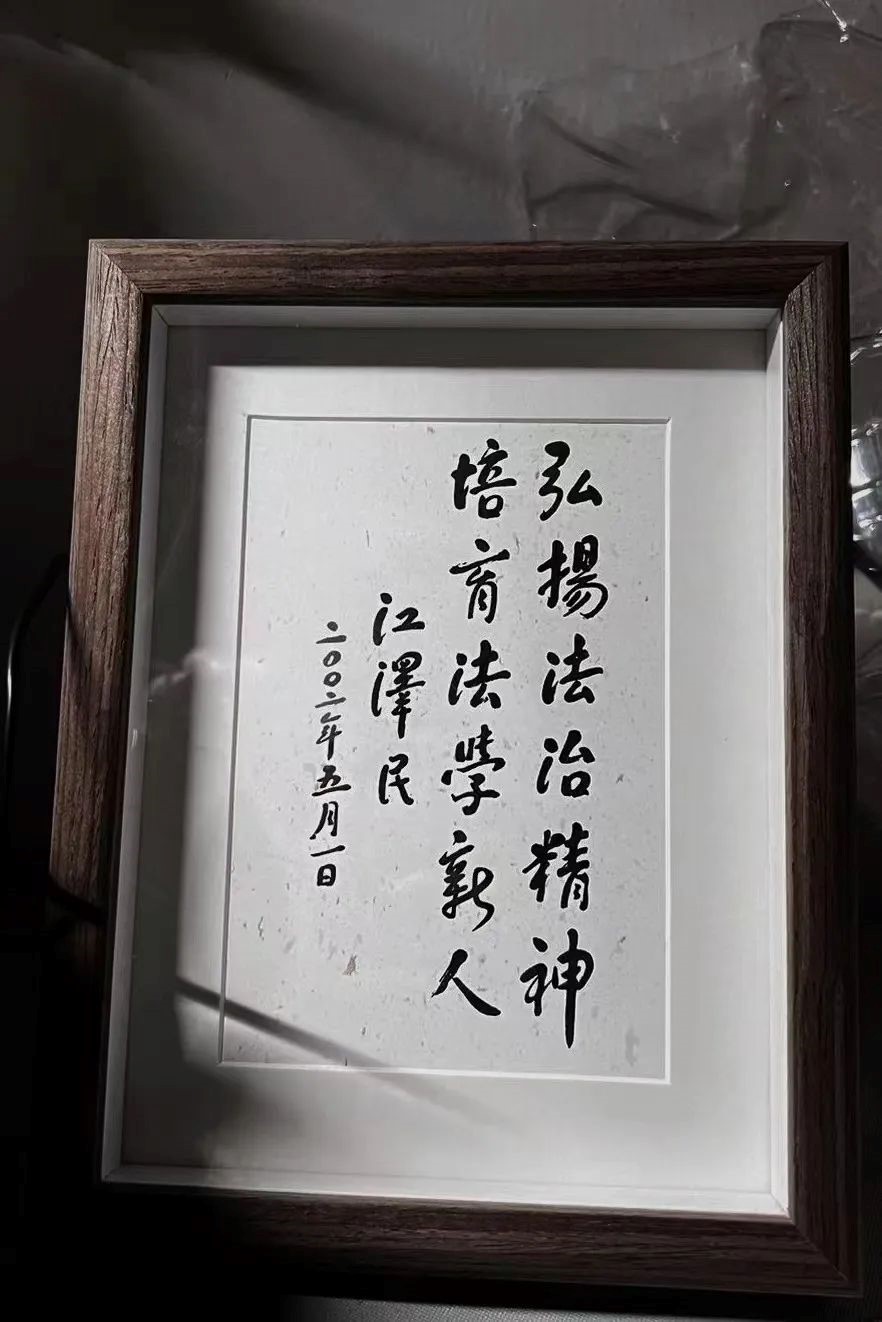 弘揚法治精神
培育法學新人
江澤民
二〇〇二年五月一日